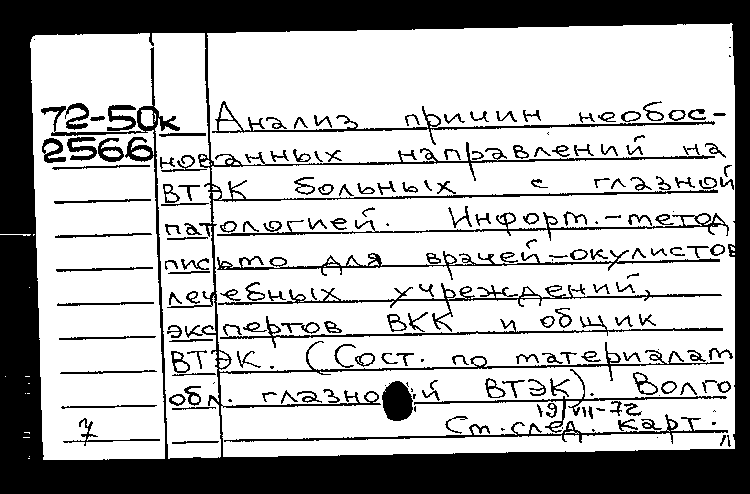 72-50к Анализ причин необос-
2566 нованных направлений на
ВТЭК больных с глазной
патологией. Информ.-метод.
письмо для врачей-окулистов
лечебных учреждений,
экспертов ВКК и общих
ВТЭК. (Сост. по материалам
обл. глазной ВТЭК). Волго
19/VII-72
7 См. след. карт.